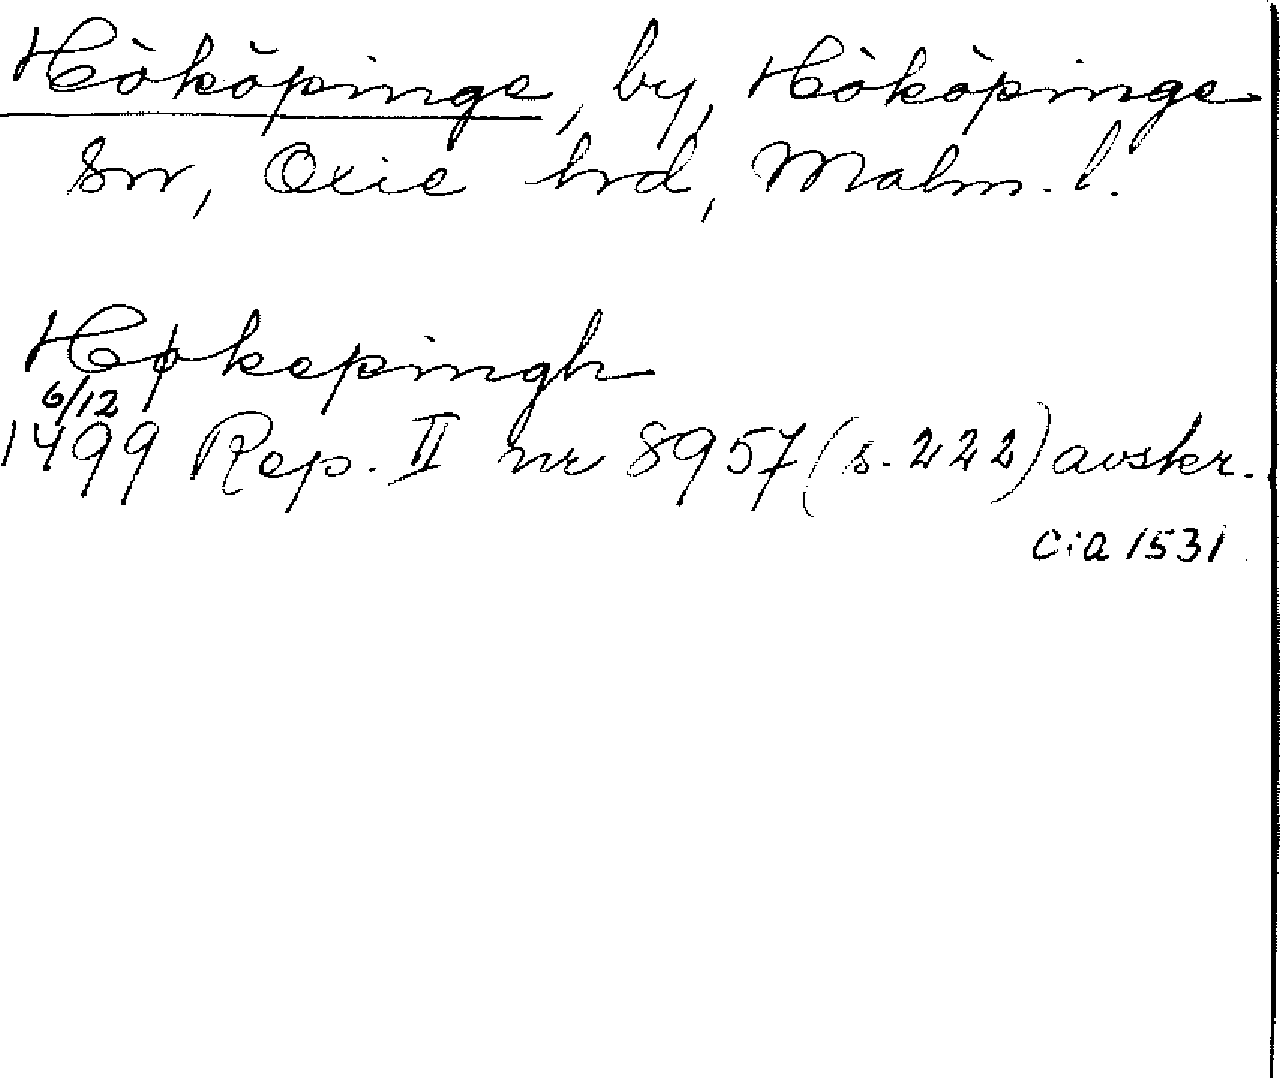 Hököpinge, by, Hököpinge
sn, Oxie hrd, Malm. l.
Høkepingh
6/12
1499 Rep. II nr 8957 (s. 222) avskr.
c:a 1531